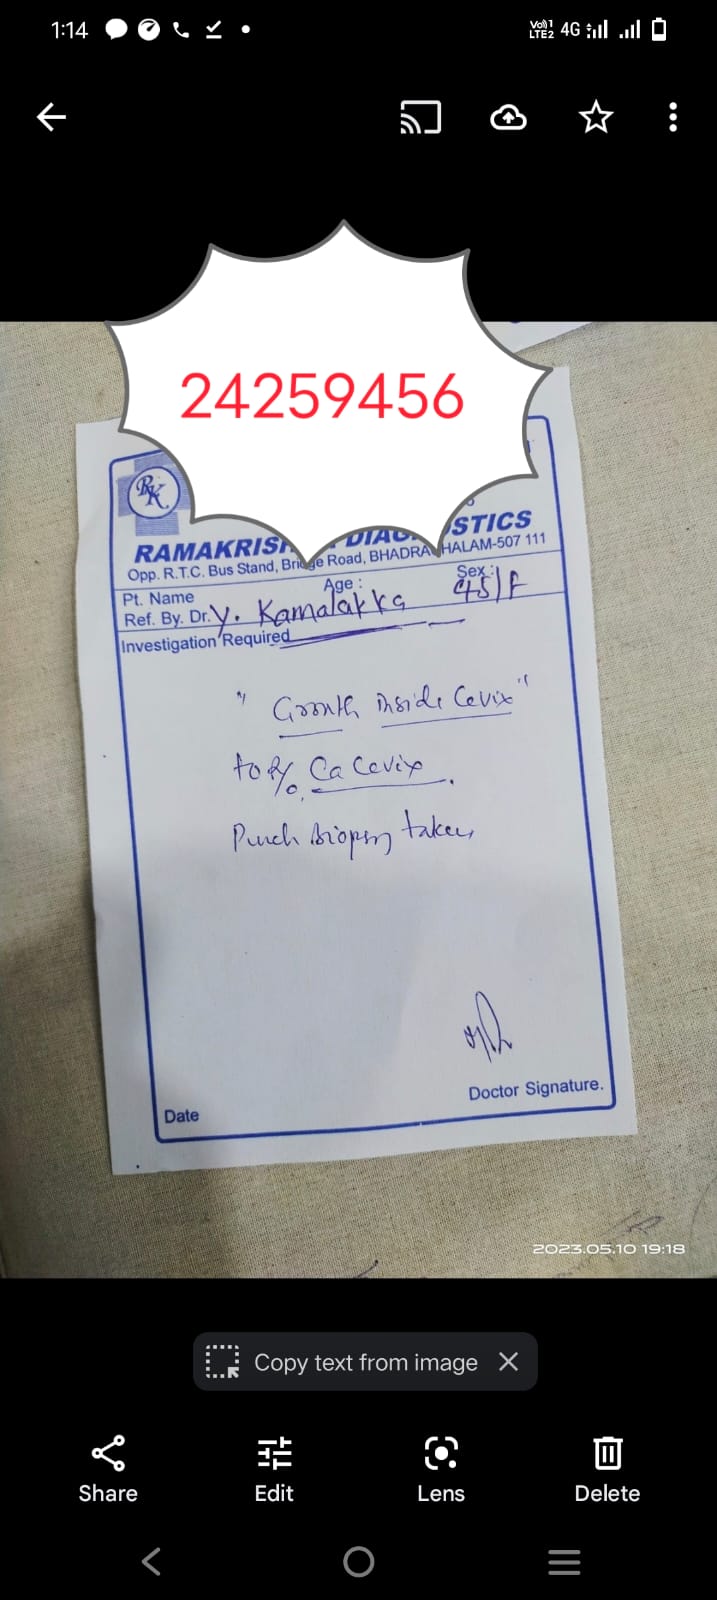 1:14
Vo)) 1
LTE2 4G
24259456
RK
RAMAKRIS DIAG STICS
Opp. R.T.C. Bus Stand, Bridge Road, BHADRA HALAM-507 111
Pt. Name Age : Sex :
Ref. By. Dr. Y. Kamalakka 45/F
Investigation Required
" Growth inside Cevix"
to R/o. Ca Cevix.
Punch Biopsy taken
Doctor Signature.
Date
2023.05.10 19:18
Copy text from image
Share Edit Lens Delete